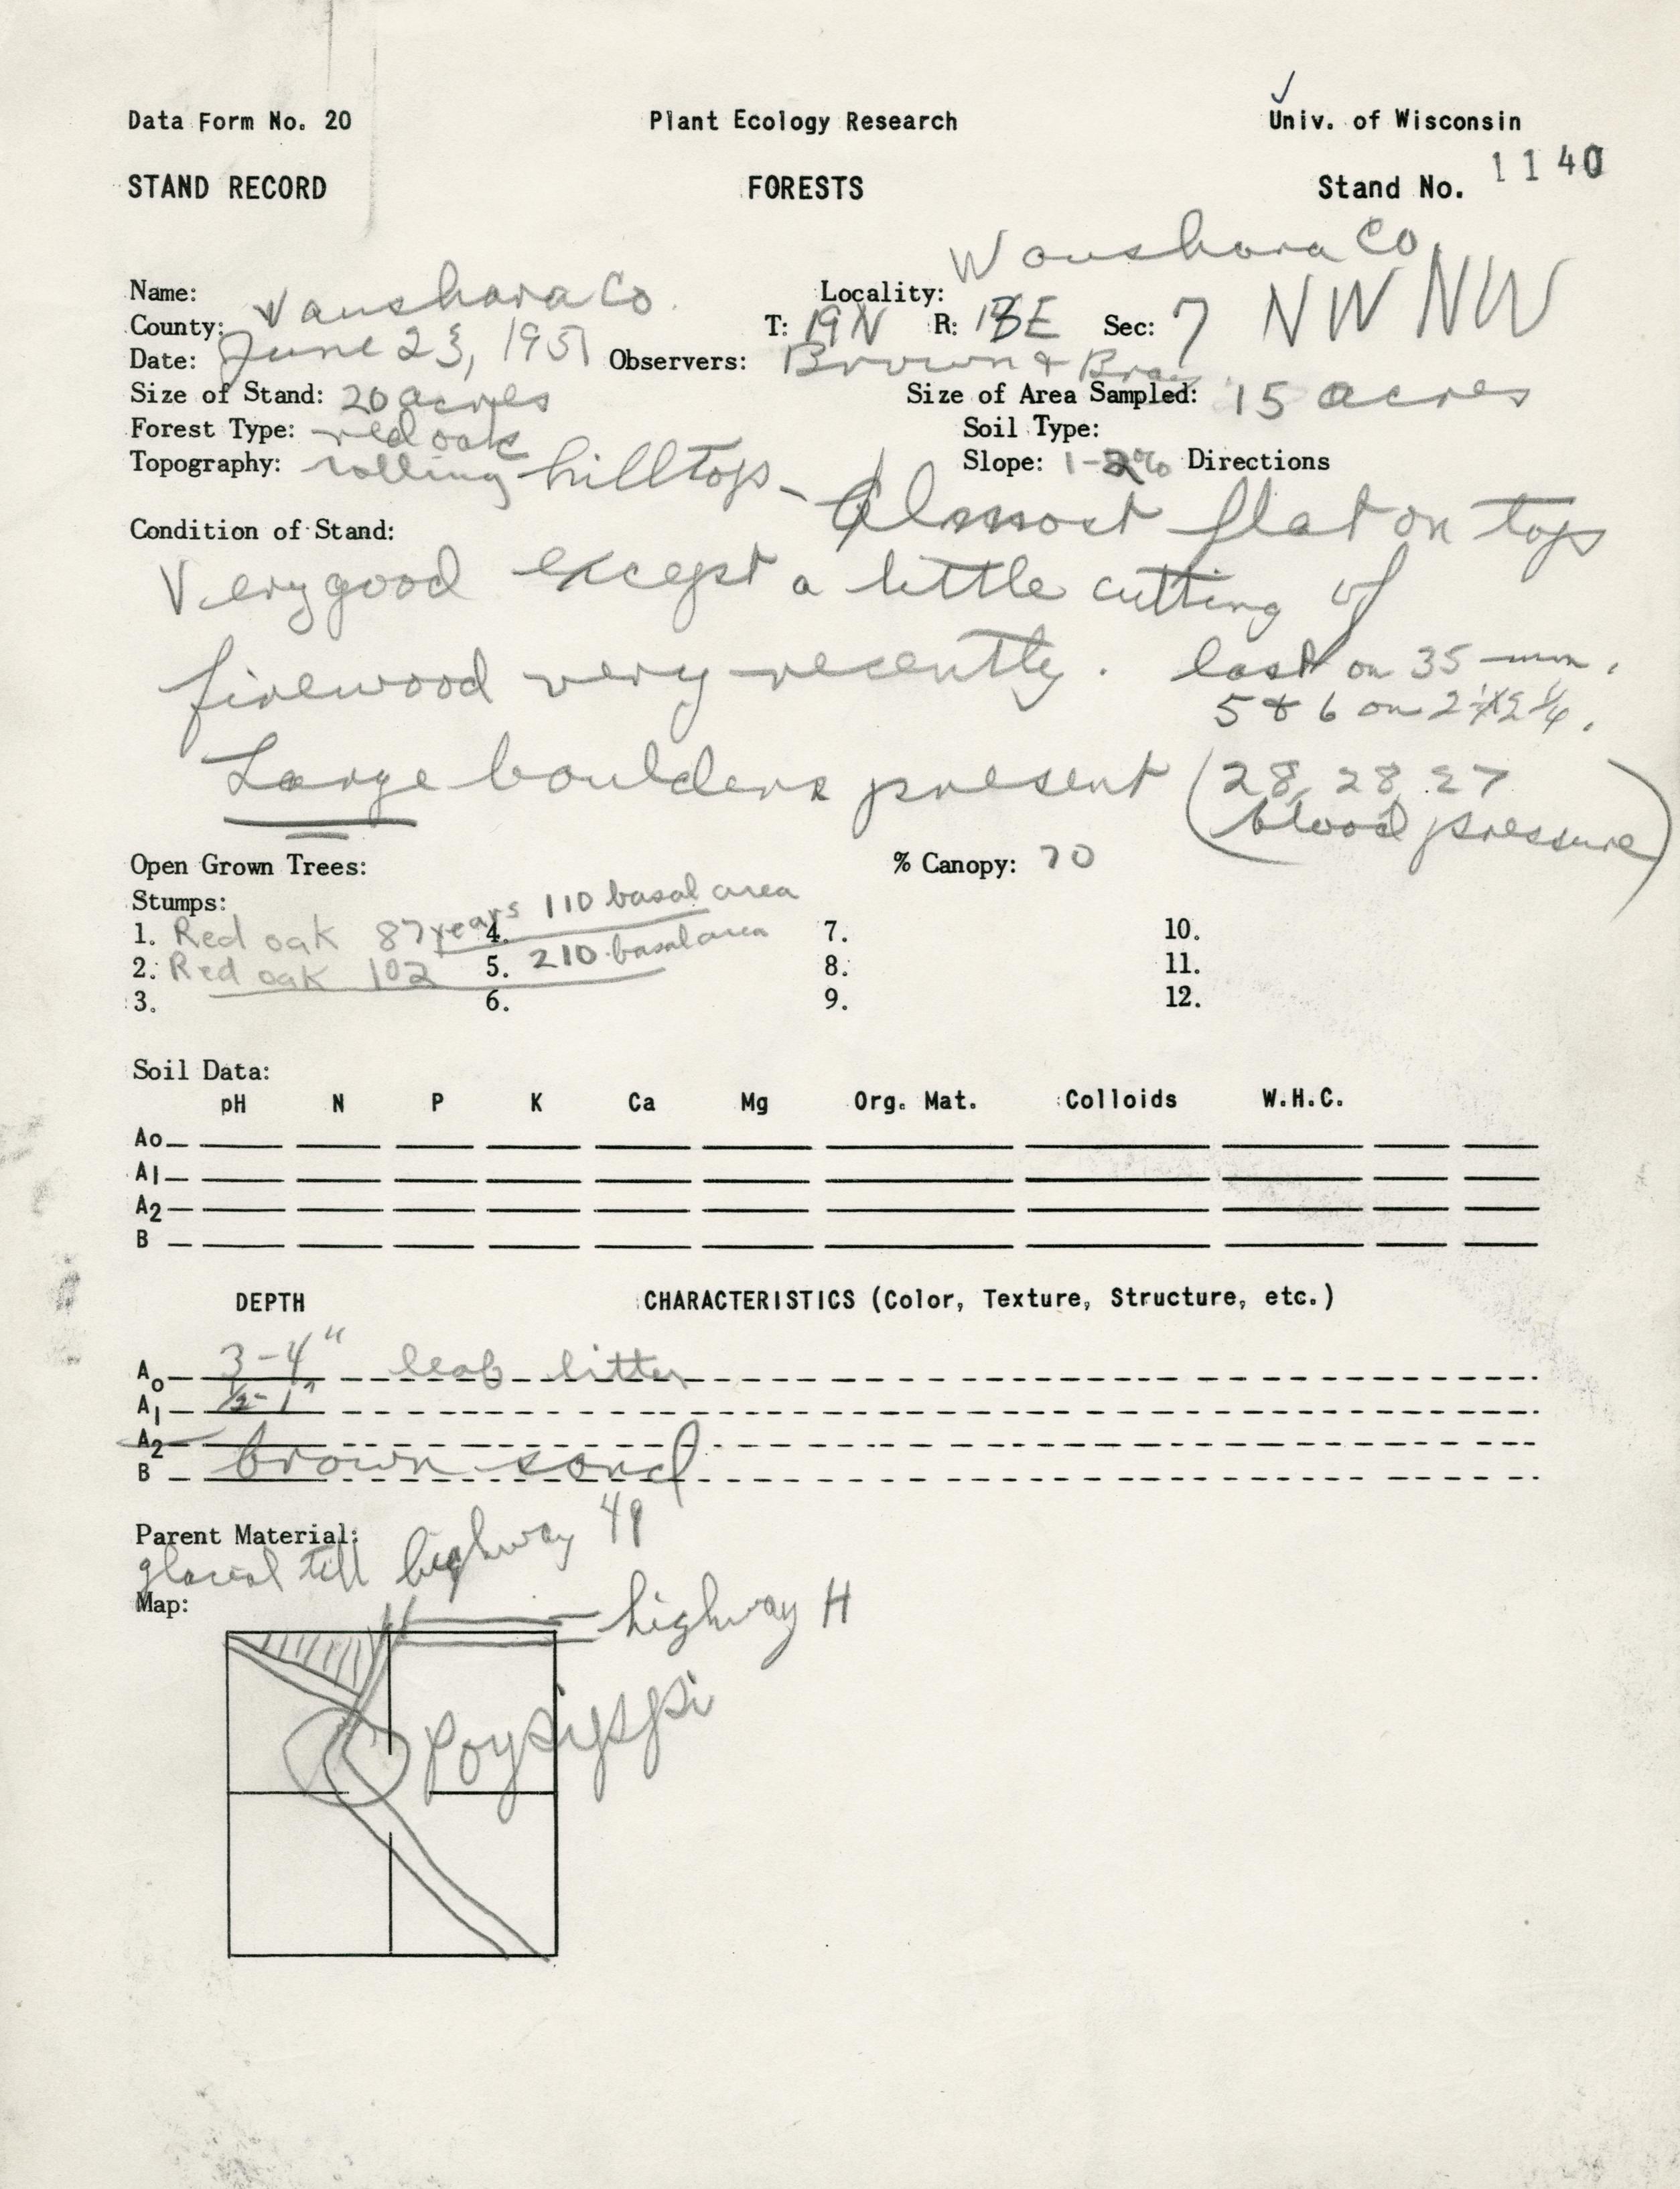 ✓
Data Form No. 20 Plant Ecology Research Univ. of Wisconsin
STAND RECORD FORESTS Stand No. 1140
Name: Locality: Waushara Co
County: Waushara Co. T: 19N R: 13E Sec: 7 NW NW
Date: June 23, 1951 Observers: Brown & Bray
Size of Stand: 20 acres Size of Area Sampled: 15 acres
Forest Type: red oak Soil Type:
Topography: rolling hilltop - Almost flat on top Slope: 1-2% Directions
Condition of Stand:
Very good except a little cutting of
firewood very recently. last on 35 mm.
5 & 6 on 2¼X2¼.
Large boulders present (28, 28, 27
blood pressure)
Open Grown Trees: % Canopy: 70
Stumps:
1. Red oak 87 years 110 basal area 4. 7. 10.
2. Red oak 102 5. 210 basal area 8. 11.
3. 6. 9. 12.
Soil Data:
pH N P K Ca Mg Org. Mat. Colloids W.H.C.
Ao
A1
A2
B
DEPTH CHARACTERISTICS (Color, Texture, Structure, etc.)
Ao 3-4" leaf litter
A1 ½-1"
A2
B brown sand
Parent Material:
glacial till highway 49
Map:
highway H
Poysippi